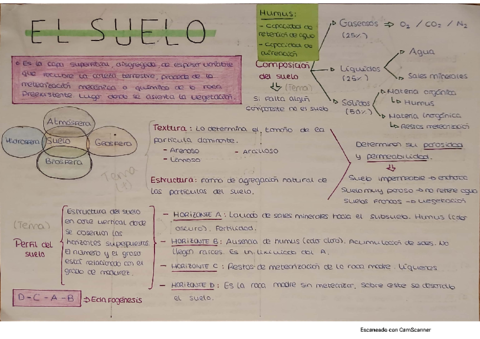 EL SUELO
Humus:
- capacidad de
retención de agua
- capacidad de
Composición
del suelo
(Tema)
si falta algún
componente no es suelo
Gaseosos → O₂ / CO₂ / N₂
(25%)
Líquidos
(25%)
Agua
Sales minerales
Sólidos
(50%)
Materia orgánica
↳ Humus
Materia inorgánica
↳ Restos meteorización
• Es la capa superficial, disgregada, de espesor variable
que recubre la corteza terrestre, procede de la
meteorización mecánica o química de la roca
Preexistente. Lugar donde se asienta la vegetación.
Atmósfera
Hidrosfera
Suelo
Geosfera
Biosfera
Textura: La determina el tamaño de la
partícula dominante.
- Arenoso
- Arcilloso
- Limoso
Estructura: forma de agregación natural de
las partículas del suelo.
Determinan su porosidad
y permeabilidad.
Suelo impermeable → encharca
Suelo muy poroso → no retiene agua
→ vegetación
(Tema)
Perfil del
suelo
Estructura del suelo
en corte vertical donde
se observan los
horizontes superpuestos.
El número y el grosor
está relacionado con el
grado de madurez.
- HORIZONTE A: Lavado de sales minerales hacia el subsuelo. Humus (color
oscuro). Fertilidad.
- HORIZONTE B: Ausencia de humus (color claro). Acumulación de sales. No
llegan raíces. Es un lixiviado del A.
- HORIZONTE C: Restos de meteorización de la roca madre. Líquenes
- HORIZONTE D: Es la roca madre sin meteorizar, sobre ella se desarrolla
el suelo.
D - C - A - B → Edafogénesis
Escaneado con CamScanner